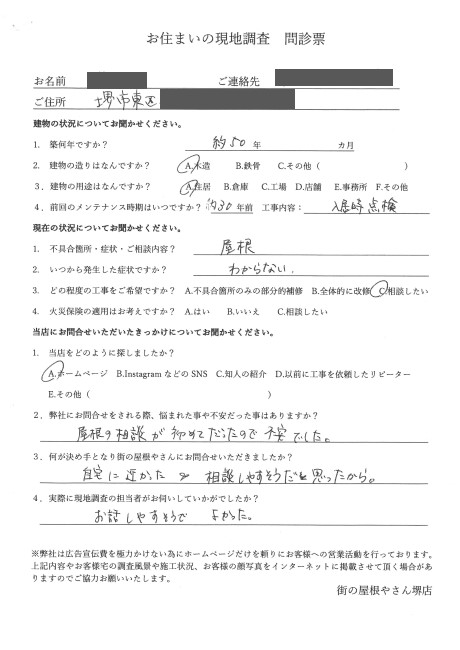 お住まいの現地調査 問診票
お名前 ご連絡先
ご住所 堺市東区
建物の状況についてお聞かせください。
1. 築何年ですか? 約50年 カ月
2. 建物の造りはなんですか? A.木造 B.鉄骨 C.その他( )
3. 建物の用途はなんですか? A.住居 B.倉庫 C.工場 D.店舗 E.事務所 F.その他
4. 前回のメンテナンス時期はいつですか? 約30年前 工事内容: 入居時点検
現在の状況についてお聞かせください。
1. 不具合箇所・症状・ご相談内容? 屋根
2. いつから発生した症状ですか? わからない。
3. どの程度の工事をご希望ですか? A.不具合箇所のみの部分的補修 B.全体的に改修 C.相談したい
4. 火災保険の適用はお考えですか? A.はい B.いいえ C.相談したい
当店にお問合せいただいたきっかけについてお聞かせください。
1. 当店をどのように探しましたか?
A.ホームページ B.Instagram などの SNS C.知人の紹介 D.以前に工事を依頼したリピーター
E.その他( )
2. 弊社にお問合せをされる際、悩まれた事や不安だった事はありますか?
屋根の相談が初めてだったので不安でした。
3. 何が決め手となり街の屋根やさんにお問合せいただきましたか?
自宅に近かった 相談しやすそうだと思ったから。
4. 実際に現地調査の担当者がお伺いしていかがでしたか?
お話しやすそうで よかった。
※弊社は広告宣伝費を極力かけない為にホームページだけを頼りにお客様への営業活動を行っております。
上記内容やお客様宅の調査風景や施工状況、お客様の顔写真をインターネットに掲載させて頂く場合があ
りますのでご協力お願いいたします。
街の屋根やさん堺店